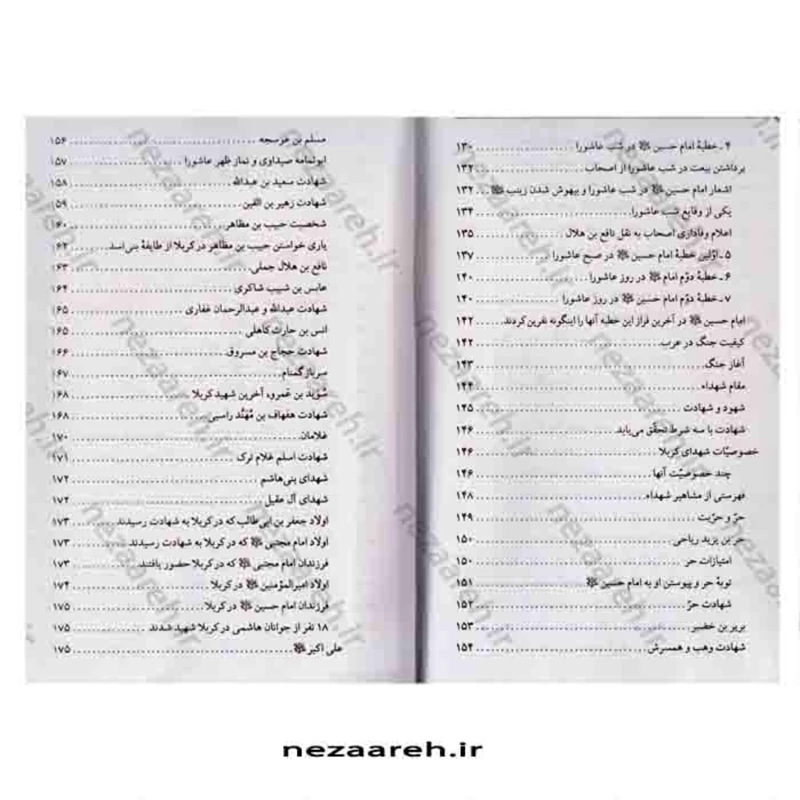 ۴ ـ خطبهٔ امام حسین ﷺ در شب عاشورا ........ ۱۳۰
برداشتن بیعت در شب عاشورا از اصحاب ........ ۱۳۲
اشعار امام حسین ﷺ در شب عاشورا و بیهوش شدن زینب ﷺ ........ ۱۳۲
یکی از وقایع شب عاشورا ........ ۱۳۴
اعلام وفاداری اصحاب به نقل نافع بن هلال ........ ۱۳۵
۵ ـ اوّلین خطبهٔ امام حسین ﷺ در صبح عاشورا ........ ۱۳۷
۶ ـ خطبهٔ دوّم امام ﷺ در روز عاشورا ........ ۱۴۰
۷ ـ خطبهٔ دوّم امام حسین ﷺ در روز عاشورا ........ ۱۴۰
امام حسین ﷺ در آخرین فراز این خطبه آنها را اینگونه نفرین کردند ........ ۱۴۲
کیفیت جنگ در عرب ........ ۱۴۲
آغاز جنگ ........ ۱۴۳
مقام شهداء ........ ۱۴۴
شهود و شهادت ........ ۱۴۵
شهادت با سه شرط تحقّق می‌یابد ........ ۱۴۶
خصوصیّات شهدای کربلا ........ ۱۴۶
چند خصوصیّت آنها ........ ۱۴۶
فهرستی از مشاهیر شهداء ........ ۱۴۸
حرّ و حرّیت ........ ۱۴۹
حر بن یزید ریاحی ........ ۱۵۰
امتیازات حر ........ ۱۵۰
توبهٔ حر و پیوستن او به امام حسین ﷺ ........ ۱۵۱
شهادت حرّ ........ ۱۵۲
بریر بن خضیر ........ ۱۵۳
شهادت وهب و همسرش ........ ۱۵۴
مسلم بن عوسجه ........ ۱۵۶
ابوثمامه صیداوی و نماز ظهر عاشورا ........ ۱۵۷
شهادت سعید بن عبدالله ........ ۱۵۸
شهادت زهیر بن القین ........ ۱۵۹
شخصیت حبیب بن مظاهر ........ ۱۶۰
یاری خواستن حبیب بن مظاهر در کربلا از طایفهٔ بنی اسد ........ ۱۶۲
نافع بن هلال جملی ........ ۱۶۳
عابس بن شبیب شاکری ........ ۱۶۴
شهادت عبدالله و عبدالرحمان غفاری ........ ۱۶۵
انس بن حارث کاهلی ........ ۱۶۵
شهادت حجاج بن مسروق ........ ۱۶۶
سرباز گمنام ........ ۱۶۷
سُوَید بن عَمرو، آخرین شهید کربلا ........ ۱۶۸
شهادت هفهاف بن مُهَنَّد راسبی ........ ۱۶۸
غلامان ........ ۱۷۰
شهادت اسلم غلام ترک ........ ۱۷۱
شهدای بنی‌هاشم ........ ۱۷۲
شهدای آل عقیل ........ ۱۷۲
اولاد جعفر بن ابی طالب که در کربلا به شهادت رسیدند ........ ۱۷۳
اولاد امام مجتبی ﷺ که در کربلا به شهادت رسیدند ........ ۱۷۳
فرزندان امام مجتبی ﷺ که در کربلا حضور یافتند ........ ۱۷۳
اولاد امیرالمؤمنین ﷺ در کربلا ........ ۱۷۴
فرزندان امام حسین ﷺ در کربلا ........ ۱۷۵
۱۸ نفر از جوانان هاشمی در کربلا شهید شدند ........ ۱۷۵
علی اکبر ﷺ ........ ۱۷۵
nezaareh.ir